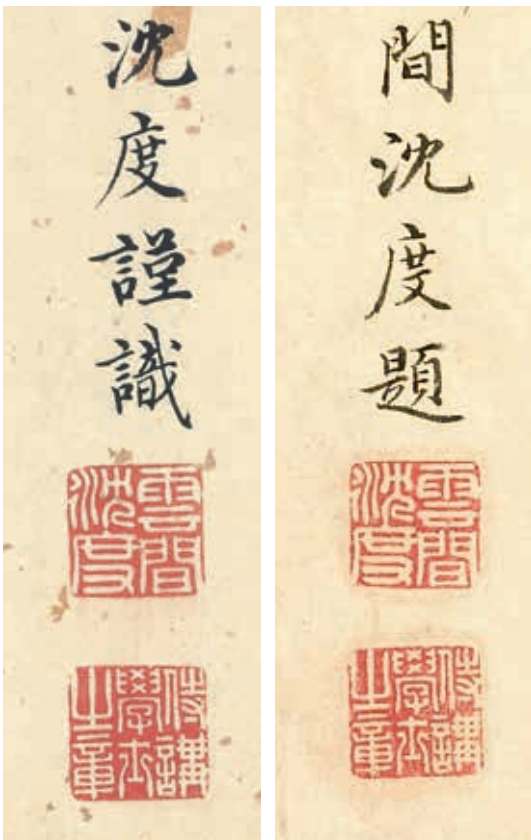 沈度謹識
雲間沈度
侍講學士之章
間沈度題
雲間沈度
侍講學士之章